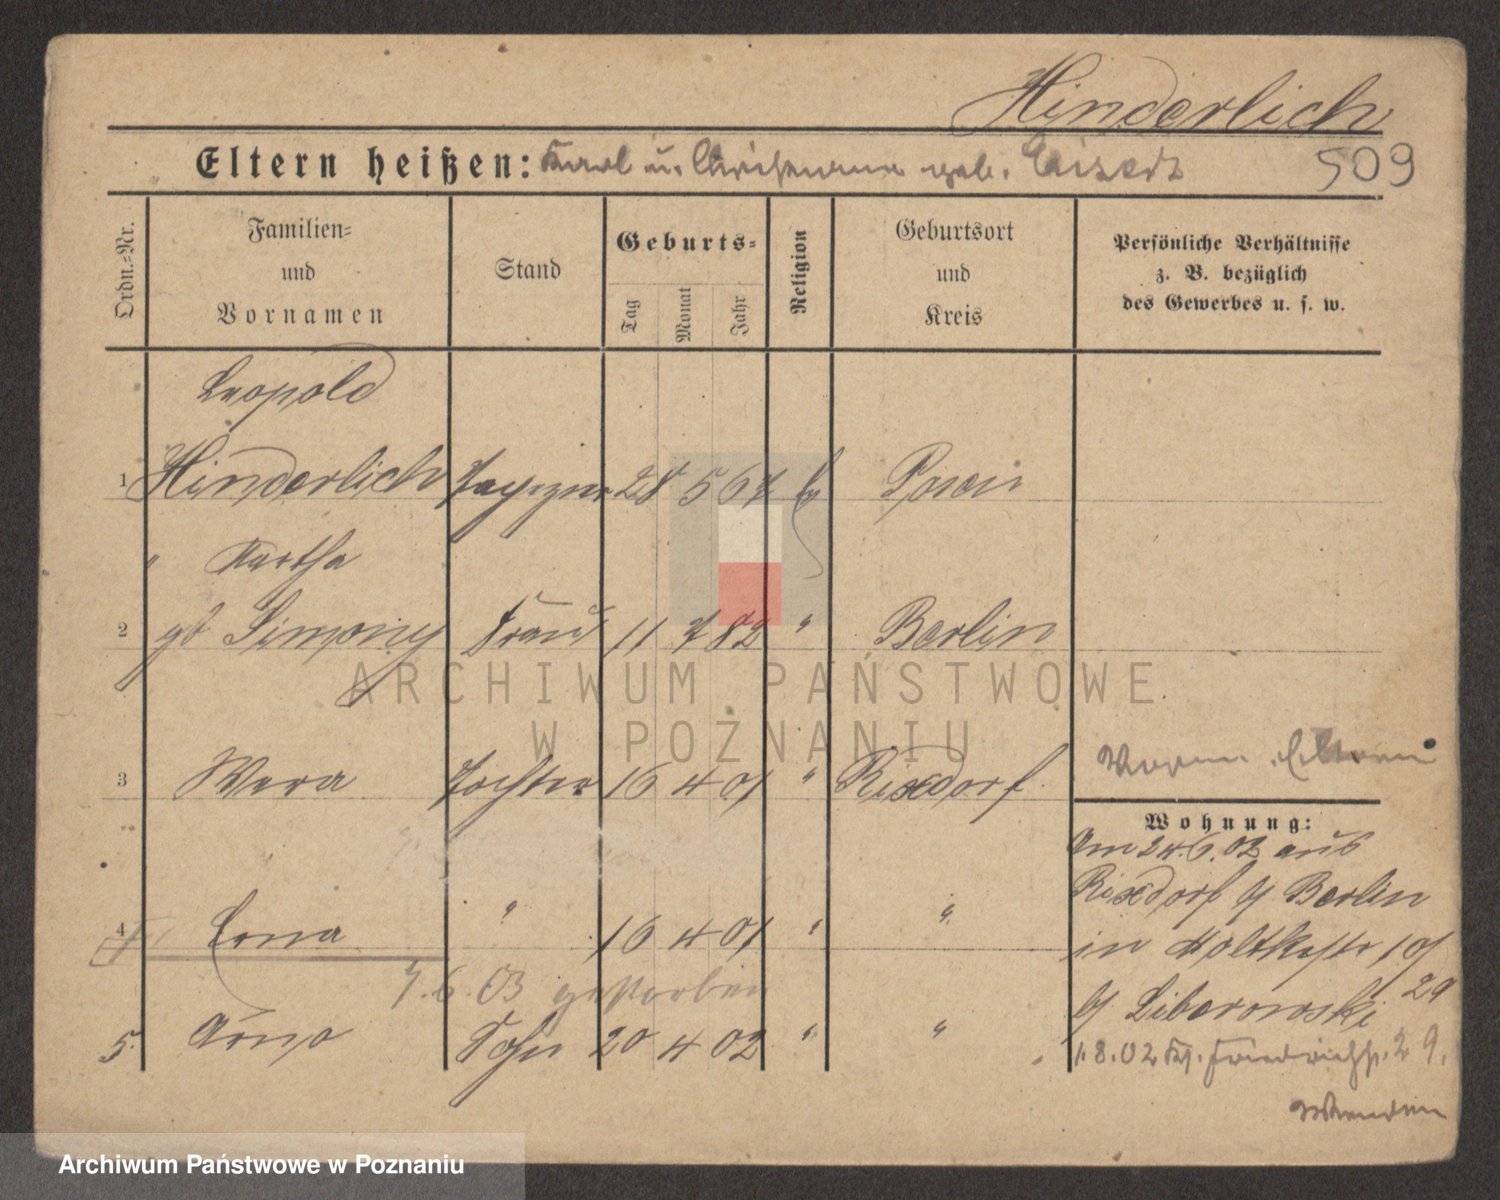 Hinderlich
Eltern heißen: Karl u. Christiane geb. Eisert
509
Ordn.=Nr.
Familien=
und
Vornamen
Stand
Geburts=
Tag
Monat
Jahr
Religion
Geburtsort
und
Kreis
Persönliche Verhältnisse
z. B. bezüglich
des Gewerbes u. s. w.
Leopold
1 Hinderlich 28 5 67 Posen
" Martha
2 gb Frau 11 7 82 " Berlin
3 Wera Tochter 16 4 01 " Rixdorf
Eltern
Wohnung:
Am 24.6.02 aus
Rixdorf b/ Berlin
4 Erna " 16 4 01 " "
in Moltkestr 10/
7.6.03 gestorben
29
b/ Liberowski
5. Arno Sohn 20 4 02 " "
1.8.02 29.
ARCHIWUM PAŃSTWOWE
W POZNANIU
Archiwum Państwowe w Poznaniu